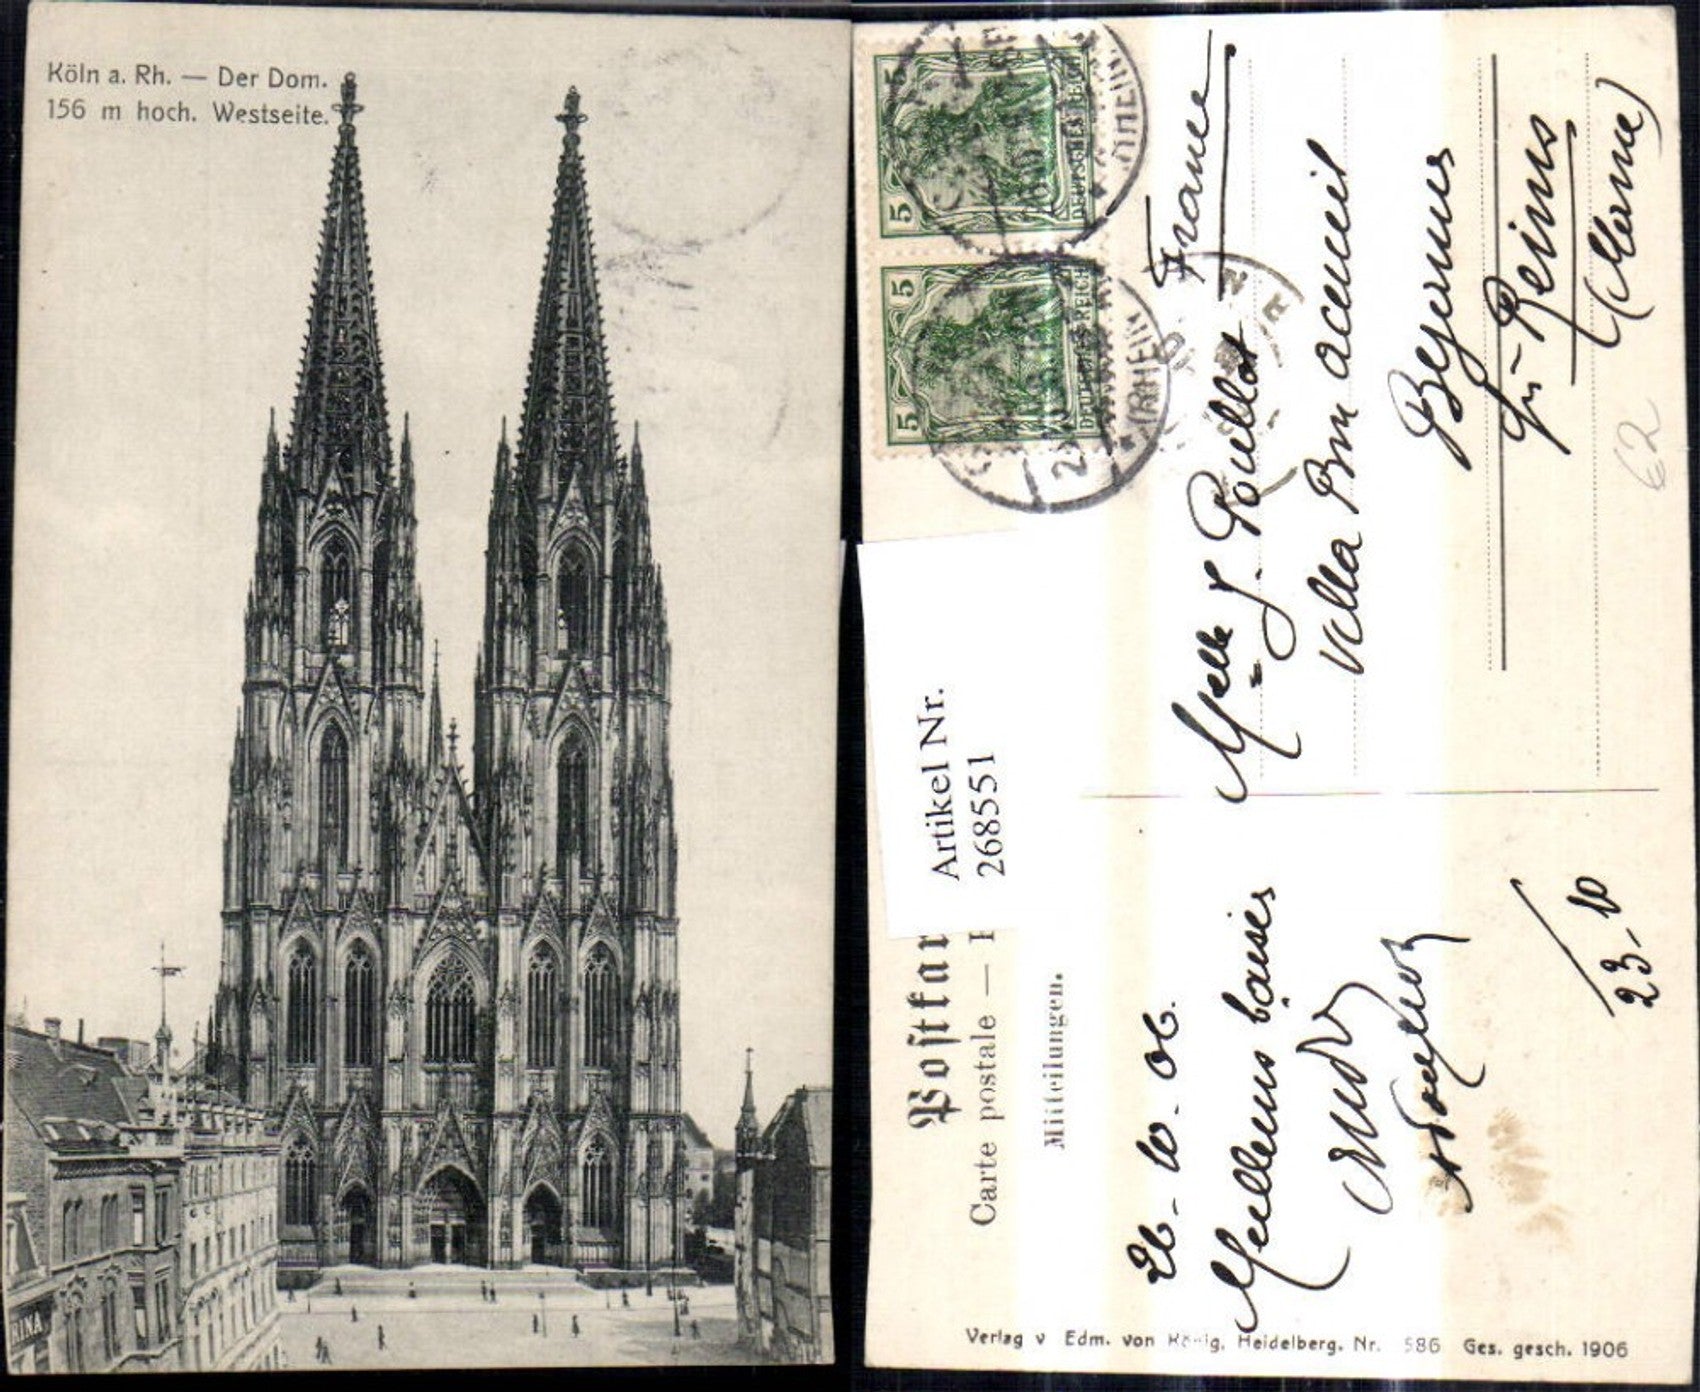 Köln a. Rh. — Der Dom.
156 m hoch. Westseite.
RINA
5 5
DEUTSCHES REICH
5 5
DEUTSCHES REICH
(RHEIN)
Artikel Nr.
268551
Postkar
Carte postale —
Mitteilungen.
France
Melle
Villa Bon accueil
Bezannes
Reims
(Marne)
62
26-10-06.
Meilleurs baisers
23-10
Verlag v Edm. von König, Heidelberg. Nr. 586 Ges. gesch. 1906